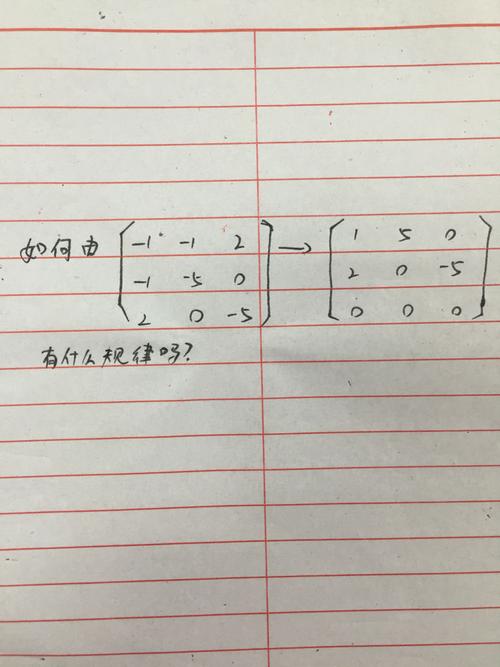 如何由 [-1 -1 2 → [1 5 0
-1 -5 0 2 0 -5
2 0 -5] 0 0 0]
有什么规律吗?